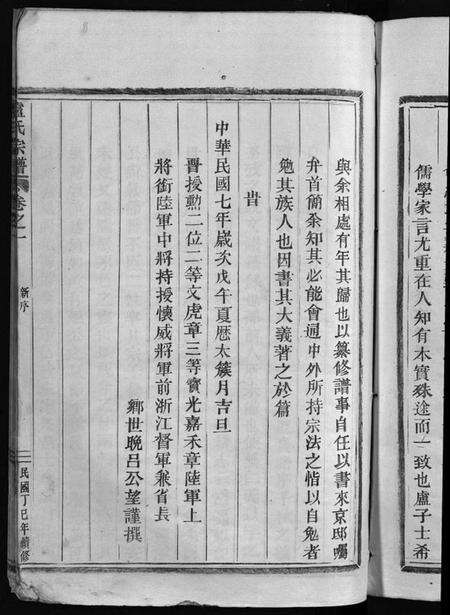 儒學家言尤重在人知有本實殊途而一致也盧子士希
與余相處有年其歸也以纂修譜事自任以書來京邸囑
弁首簡余知其必能會通中外所持宗法之悟以自勉者
勉其族人也因書其大義著之於篇
旹
中華民國七年歲次戊午夏曆太簇月吉旦
晉授勳二位二等文虎章三等寶光嘉禾章陸軍上
將銜陸軍中將特授懷威將軍前浙江督軍兼省長
鄉世晚呂公望謹撰
盧氏宗譜
卷之一
新序
民國丁巳年續修